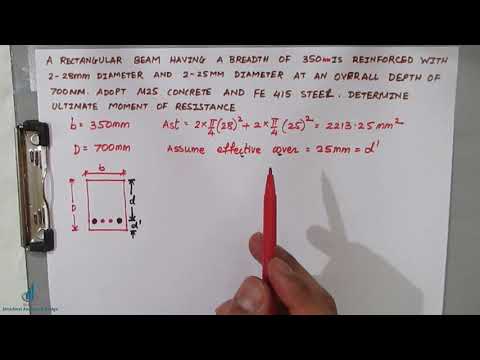 A RECTANGULAR BEAM HAVING A BREADTH OF 350mm IS REINFORCED WITH
2-28mm DIAMETER AND 2-25MM DIAMETER AT AN OVERALL DEPTH OF
700MM. ADOPT M25 CONCRETE AND FE 415 STEEL. DETERMINE
ULTIMATE MOMENT OF RESISTANCE
b = 350mm Ast = 2×π/4(28)² + 2×π/4(25)² = 2213.25mm²
D = 700mm ASSUME effective cover = 25mm = d'
b
D
d
d'